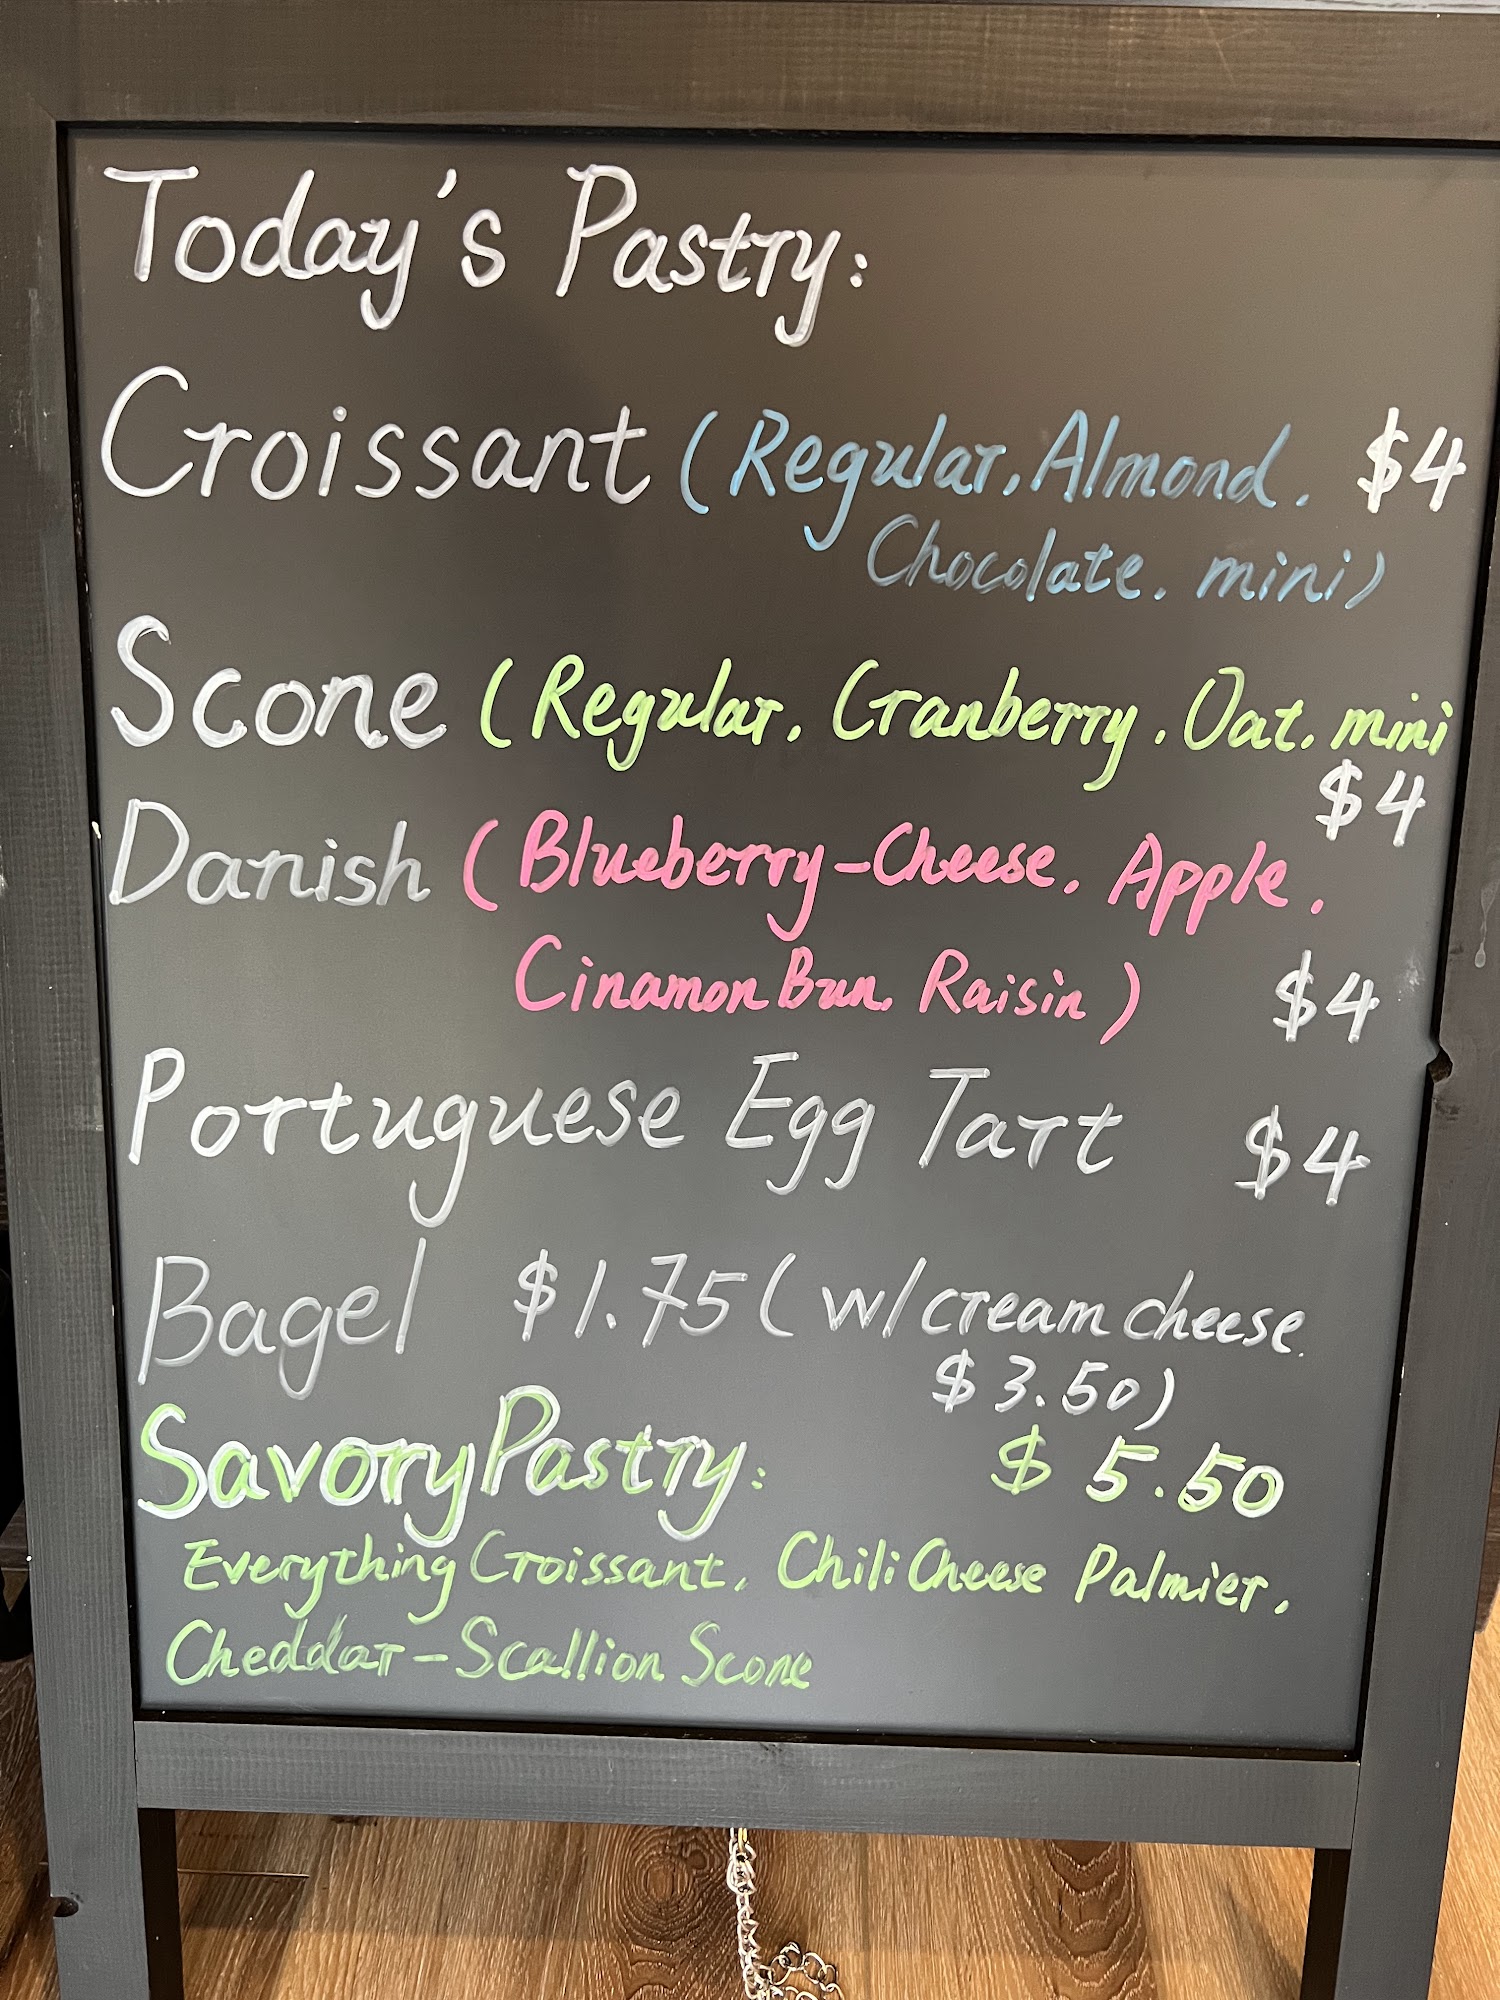 Today's Pastry:
Croissant (Regular, Almond. $4
Chocolate. mini)
Scone (Regular. Cranberry. Oat. mini
$4
Danish (Blueberry-Cheese. Apple.
Cinamon Bun. Raisin) $4
Portuguese Egg Tart $4
Bagel $1.75 (w/cream cheese.
$3.50)
Savory Pastry: $5.50
Everything Croissant, Chili Cheese Palmier.
Cheddar-Scallion Scone